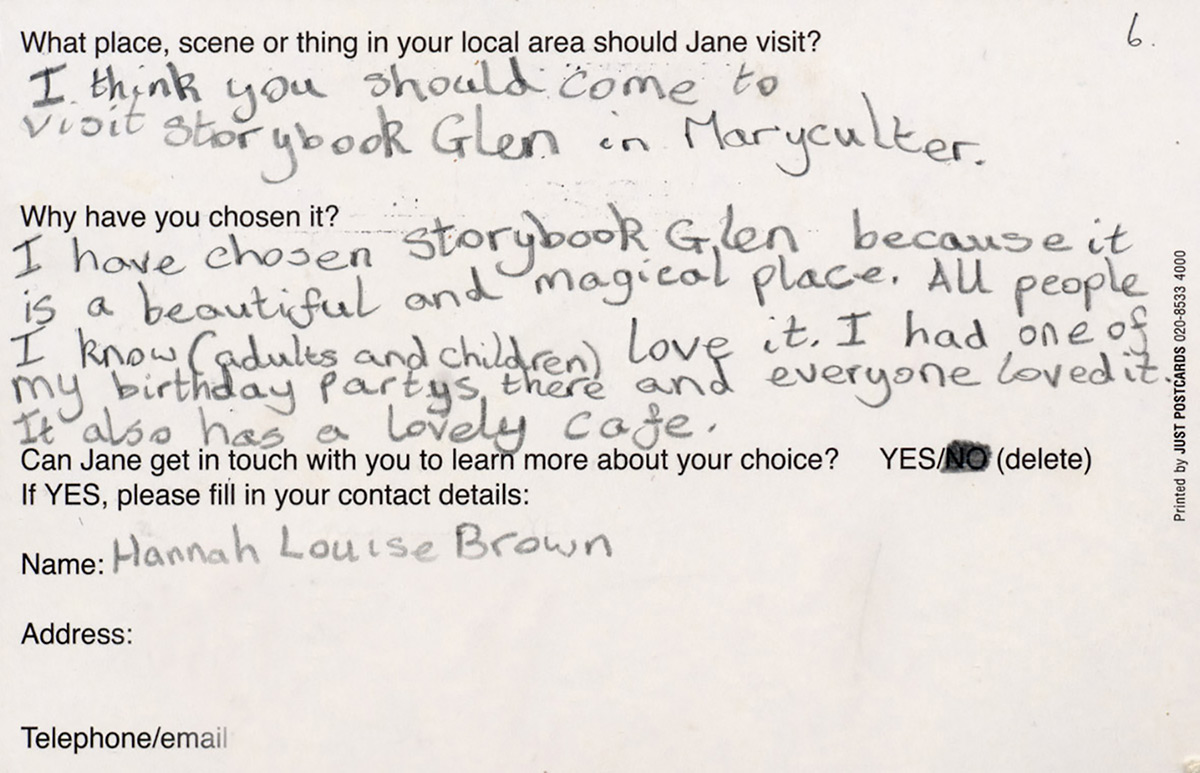 What place, scene or thing in your local area should Jane visit?
6.
I think you should come to
visit Storybook Glen in Maryculter.
Why have you chosen it?
I have chosen Storybook Glen because it
is a beautiful and magical place. All people
I know (adults and children) love it. I had one of
my birthday partys there and everyone loved it.
It also has a lovely cafe.
Can Jane get in touch with you to learn more about your choice? YES/NO (delete)
If YES, please fill in your contact details:
Name: Hannah Louise Brown
Address:
Telephone/email
Printed by JUST POSTCARDS 020-8533 4000